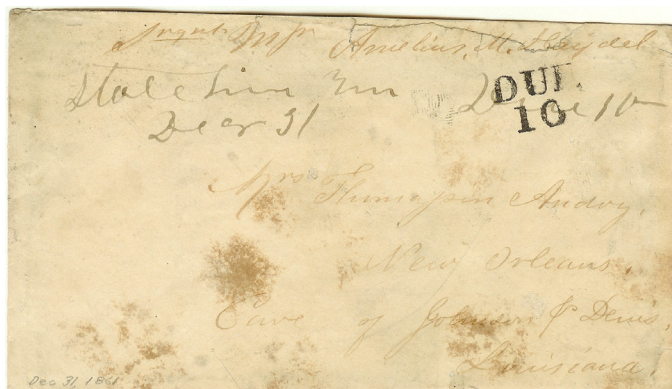 Amelius. M. Haydel
State Line Ten Due 10
DUE
10
Decr 31
Mrs Thompson Andry,
New Orleans,
Care of Johnson & Denis
Louisiana.
Dec 31, 1861